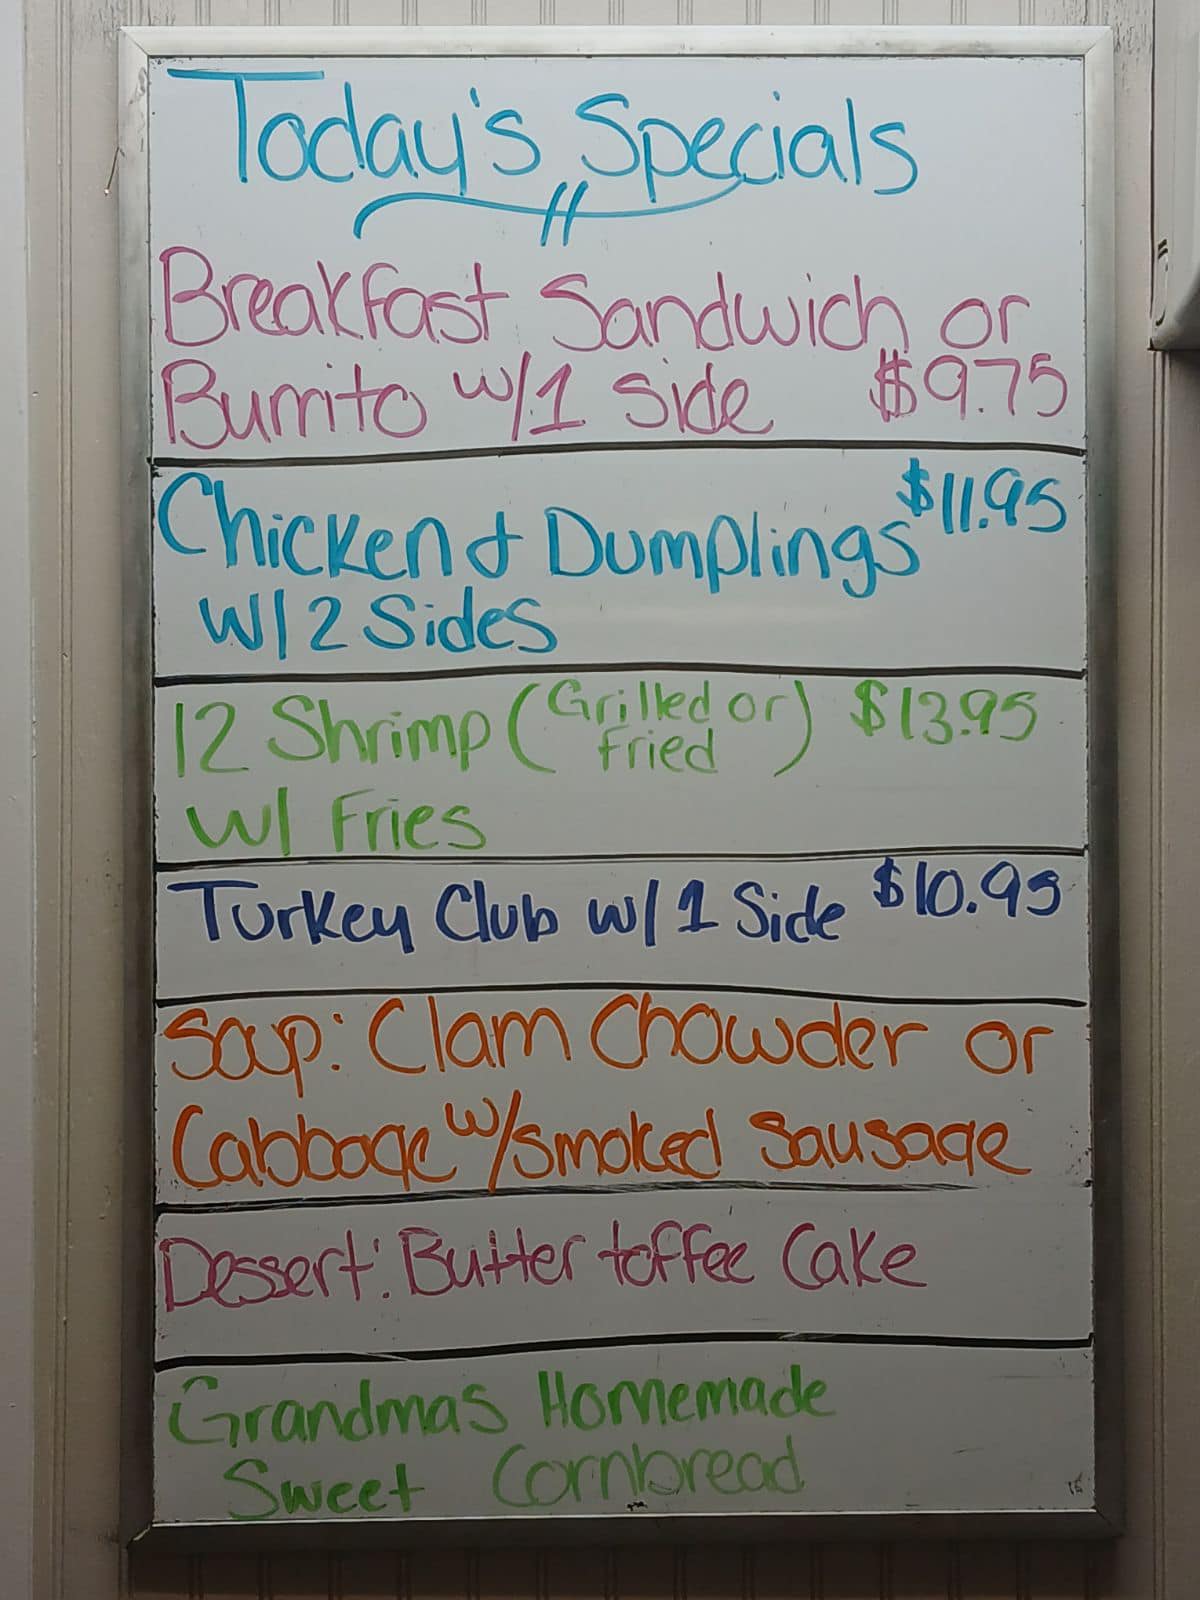 Today's Specials
Breakfast Sandwich or
Burrito w/1 Side $9.75
Chicken & Dumplings $11.95
W/2 Sides
12 Shrimp (Grilled or Fried) $13.95
w/ Fries
Turkey Club w/1 Side $10.95
Soup: Clam Chowder or
Cabbage w/smoked Sausage
Dessert: Butter toffee Cake
Grandmas Homemade
Sweet Cornbread